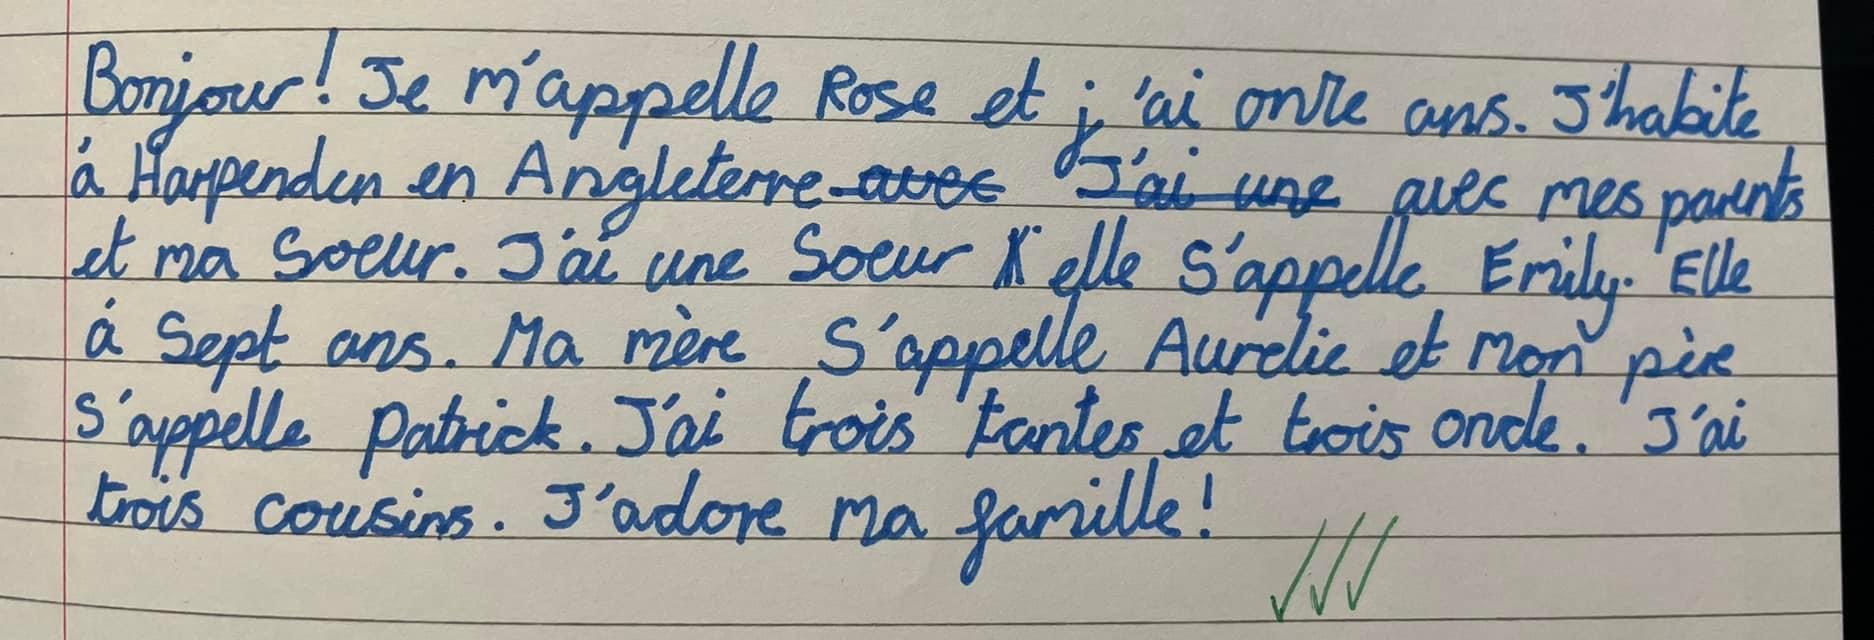 Bonjour! Je m'appelle Rose et j'ai onze ans. J'habite
á Harpenden en Angleterre avec J'ai une avec mes parents
et ma soeur. J'ai une soeur elle s'appelle Emily. Elle
á sept ans. Ma mère s'appelle Aurelie et mon père
s'appelle Patrick. J'ai trois tantes et trois oncle. J'ai
trois cousins. J'adore ma famille!